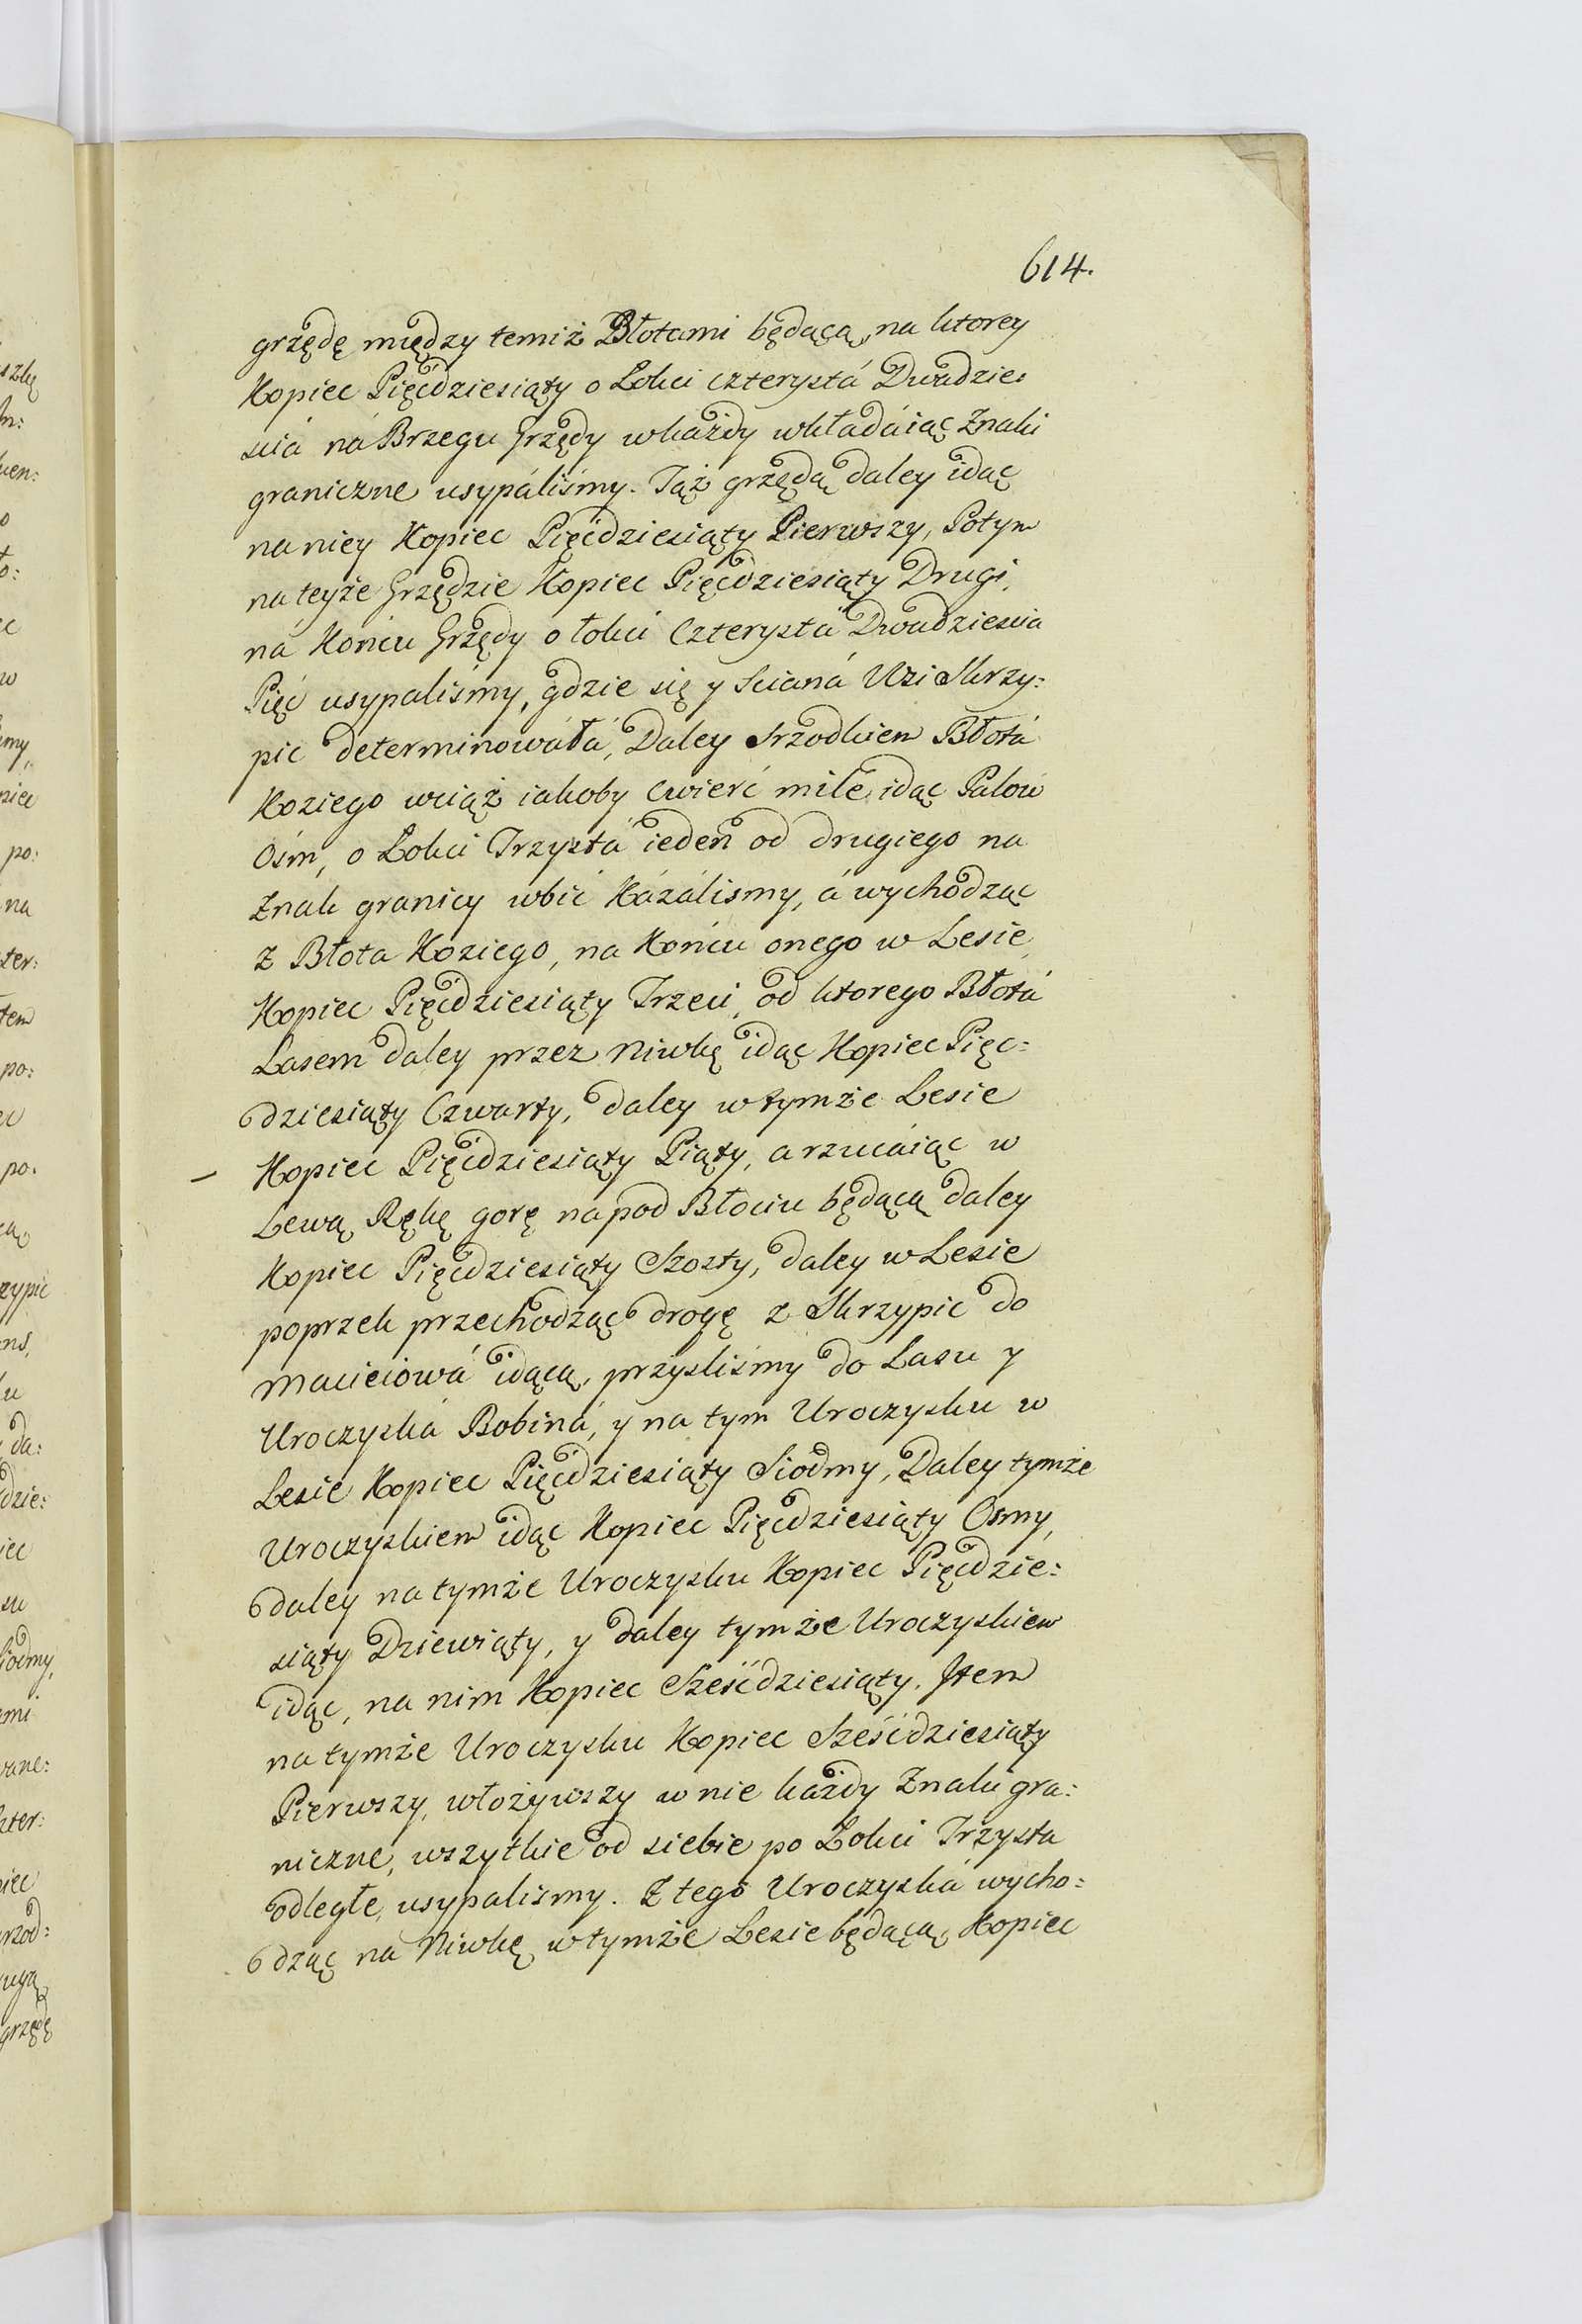 614.
grzędę między temiż Błotami będącą, na ktorey
Kopiec Pięćdziesiąty o Łokci czterystá Dwadzies
sciá ná Brzegu Grzędy wkażdy wkładáiąc Znaki
graniczne usypáliśmy. Tąż grzędą daley idąc
na niey Kopiec Pięćdziesiąty Pierwszy, Potym
na teyże Grzędzie Kopiec Pięćdziesiąty Drugi,
ná Końcu Grzędy o łokci Czterystá Dwadziescia
Pięć usypaliśmy, gdzie się y Scianá Wsi Skrzy:
pic determinowáłá, Daley Srzodkiem Błotá
Koziego wciąż iakoby cwierć mile idąc Palow
Ośm, o Łokci Trzystá ieden od drugiego na
Znak granicy wbić Kázálismy, á wychodząc
z Błota Koziego, na Końcu onego w Lesie,
Kopiec Pięćdziesiąty Trzeci, od ktorego Błotá
Lasem daley przez Niwkę idąc Kopiec Pięc:
dziesiąty Czwarty, daley w tymże Lesie
– Kopiec Pięćdziesiąty Piąty, a rzucáiąc w
Lewą Rękę gorę na pod Błociu będącą daley
Kopiec Pięćdziesiąty Szosty, daley w Lesie
poprzek przechodząc drogę z Skrzypic do
Maciciowá idącą, przysliśmy do Lasu y
Uroczyská Bobiná, y na tym Uroczysku w
Lesie Kopiec Pięćdziesiąty Siodmy, Daley tymże
Uroczyskiem idąc Kopiec Pięćdziesiąty Osmy,
daley na tymże Uroczysku Kopiec Pięćdzie:
siąty Dziewiąty, y daley tymże Uroczyskiem
idąc, na nim Kopiec Sześćdziesiąty. Item
na tymże Uroczysku Kopiec Sześćdziesiąty
Pierwszy, włożywszy w nie każdy Znaki gra:
niczne, wszytkie od siebie po Łokci Trzysta
odległe, usypalismy. Z tego Uroczyská wycho:
dząc na Niwkę w tymże Lesie będącą, Kopiec